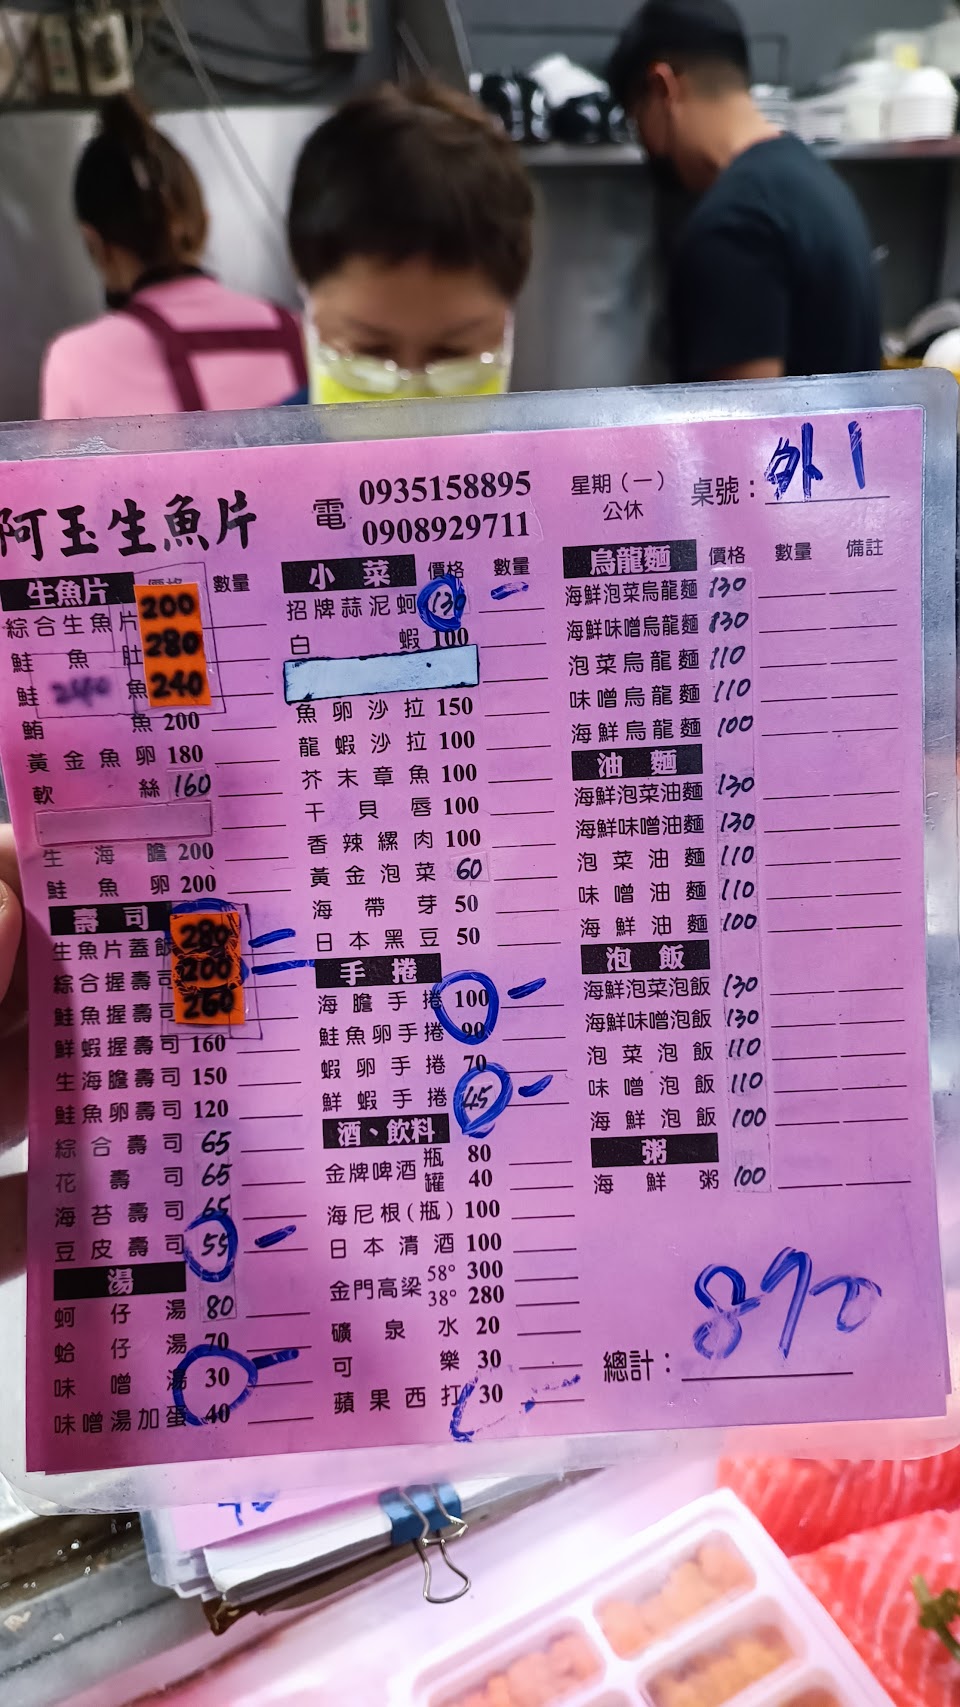 阿玉生魚片
電 0935158895
0908929711
星期（一）
公休
桌號：外1
生魚片 價格 數量
綜合生魚片 200
鮭魚肚 280
鮭魚 240
鮪魚 200
黃金魚卵 180
軟絲 160
生海膽 200
鮭魚卵 200
壽司
生魚片蓋飯 280
綜合握壽司 200
鮭魚握壽司 260
鮮蝦握壽司 160
生海膽壽司 150
鮭魚卵壽司 120
綜合壽司 65
花壽司 65
海苔壽司 65
豆皮壽司 55
湯
蚵仔湯 80
蛤仔湯 70
味噌湯 30
味噌湯加蛋 40
小菜 價格 數量
招牌蒜泥蚵 130
白蝦 100
魚卵沙拉 150
龍蝦沙拉 100
芥末章魚 100
干貝唇 100
香辣螺肉 100
黃金泡菜 60
海帶芽 50
日本黑豆 50
手捲
海膽手捲 100
鮭魚卵手捲 90
蝦卵手捲 70
鮮蝦手捲 45
酒、飲料
金牌啤酒 瓶 80
罐 40
海尼根(瓶) 100
日本清酒 100
金門高梁 58° 300
38° 280
礦泉水 20
可樂 30
蘋果西打 30
烏龍麵 價格 數量 備註
海鮮泡菜烏龍麵 130
海鮮味噌烏龍麵 130
泡菜烏龍麵 110
味噌烏龍麵 110
海鮮烏龍麵 100
油麵
海鮮泡菜油麵 130
海鮮味噌油麵 130
泡菜油麵 110
味噌油麵 110
海鮮油麵 100
泡飯
海鮮泡菜泡飯 130
海鮮味噌泡飯 130
泡菜泡飯 110
味噌泡飯 110
海鮮泡飯 100
粥
海鮮粥 100
總計：890